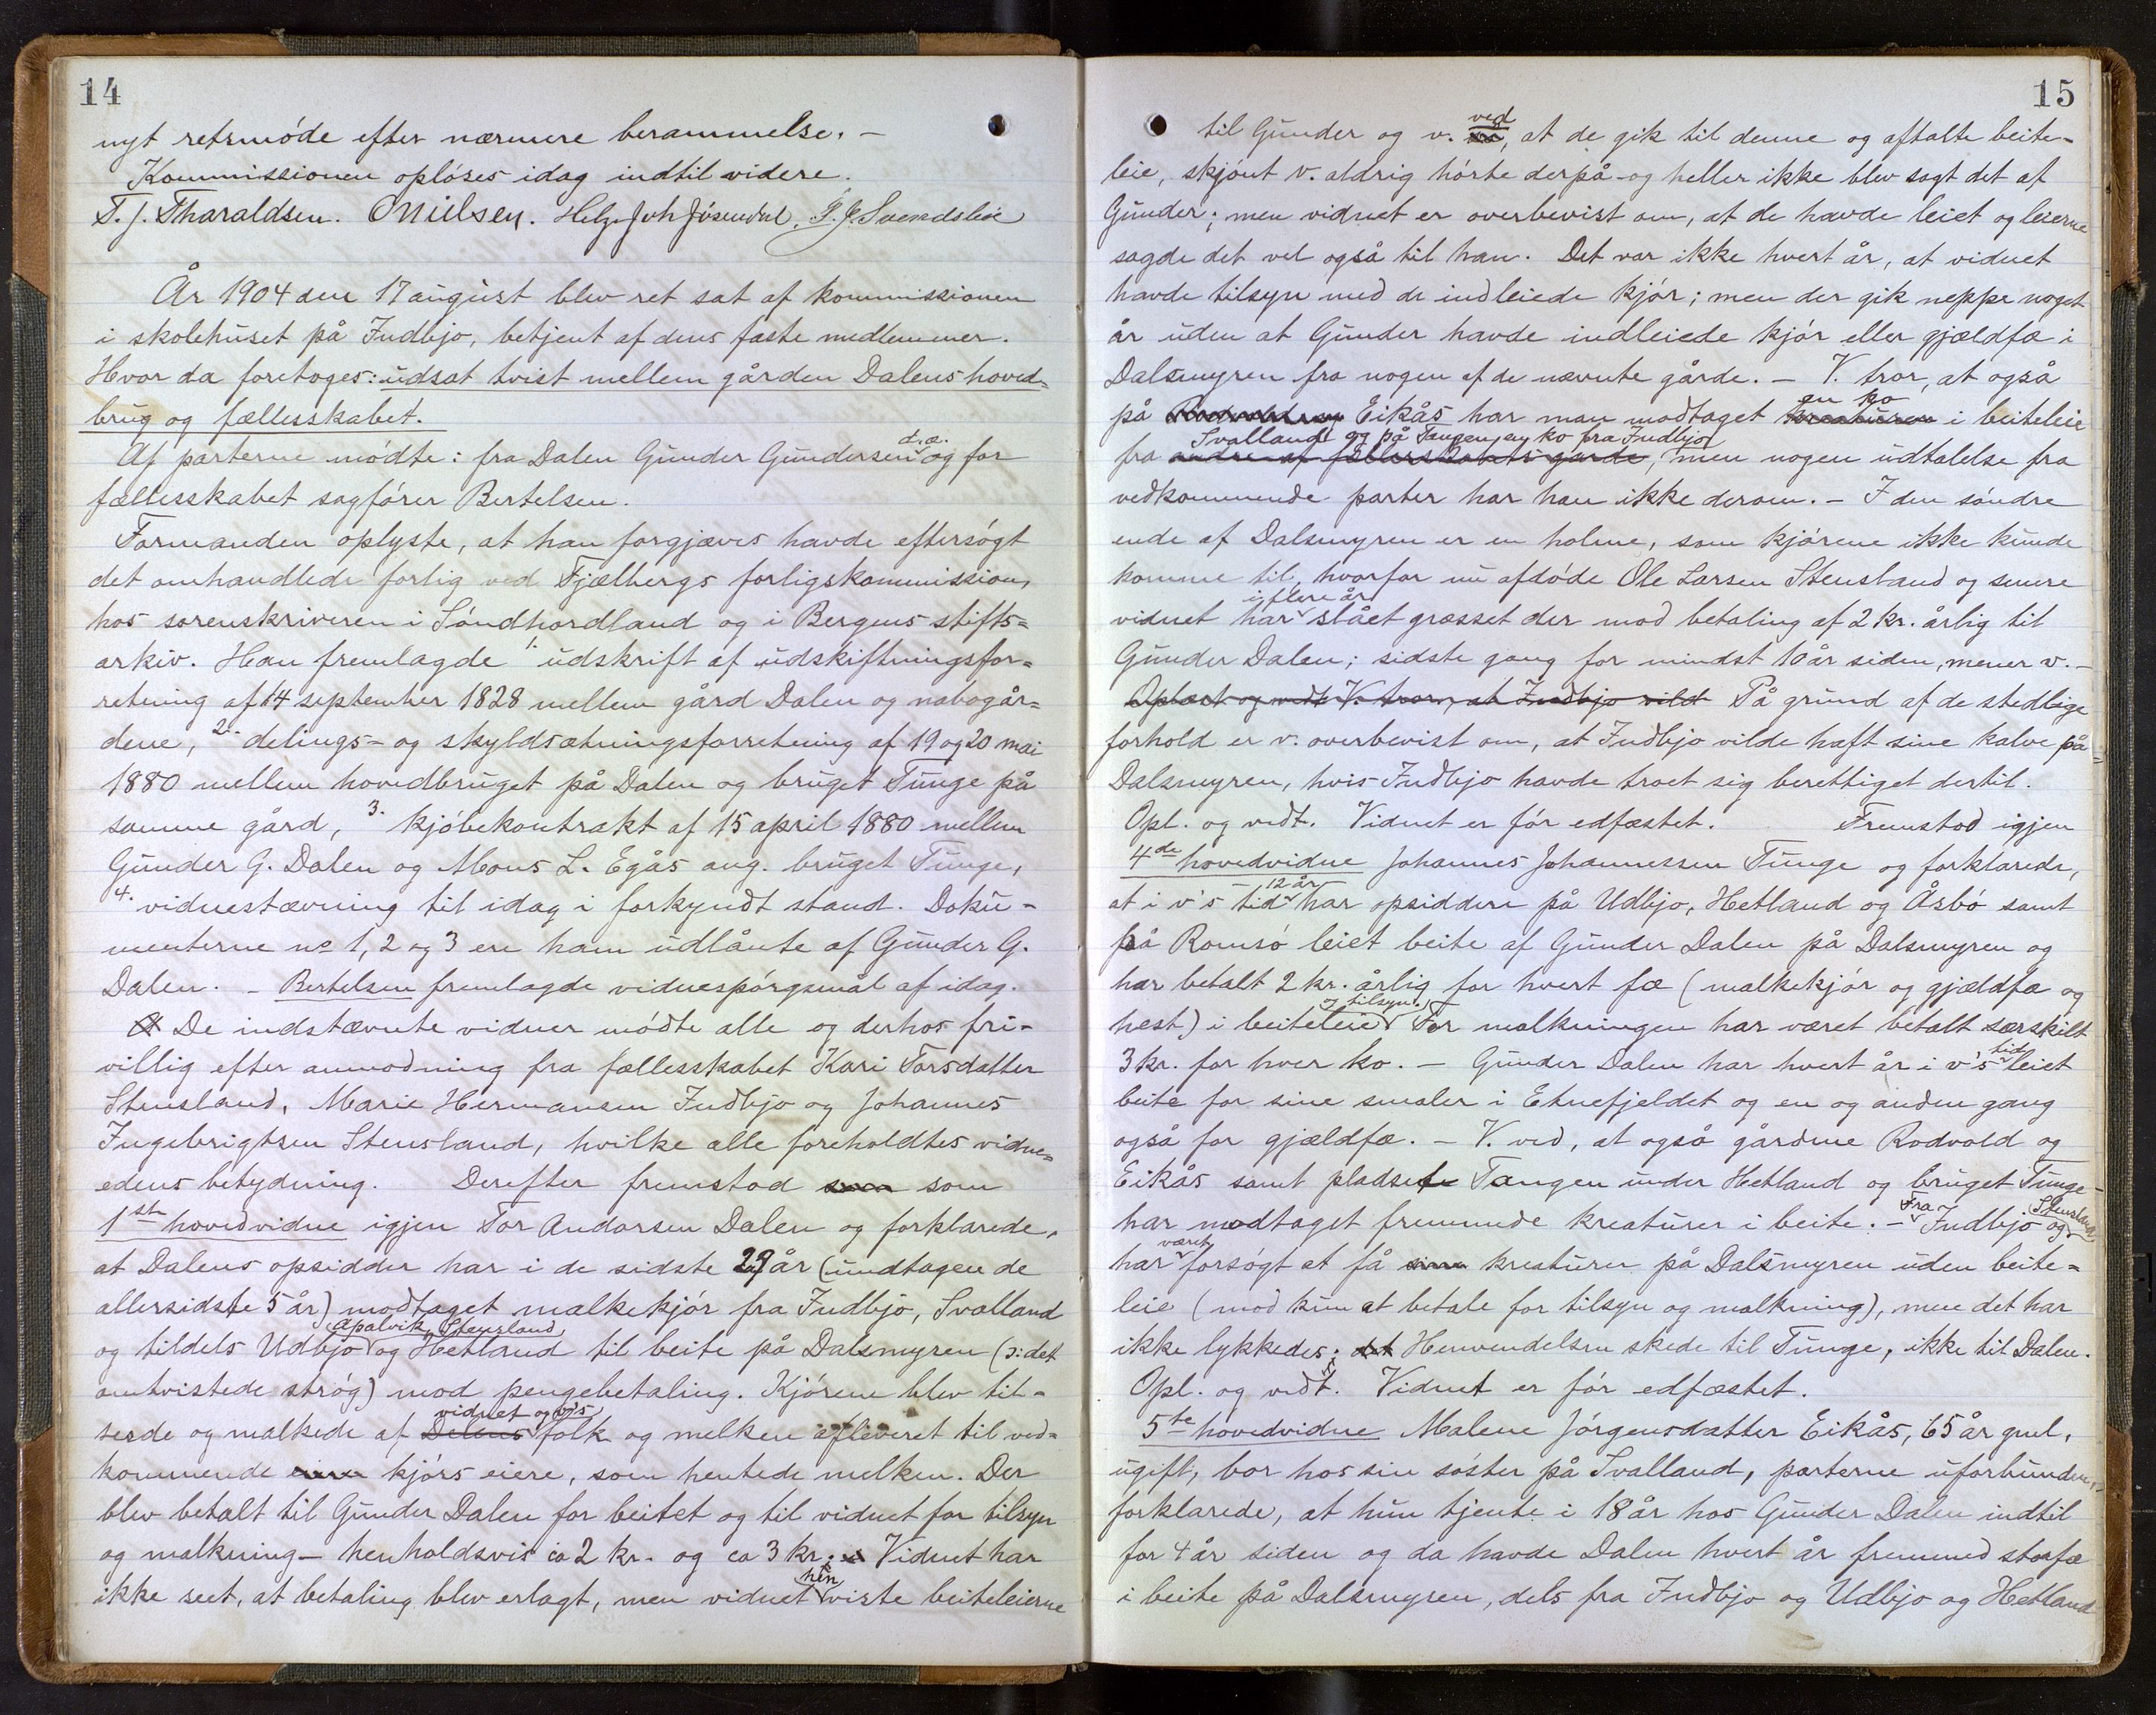 14
nyt retsmóde efter nærmere berammelse. –
Kommissionen oplóses idag indtil videre.
T. J. Tharaldsen. O Nielsen. Helge Joh Jósendal.
År 1904 den 17 august blev ret sat af kommissionen
i skolehuset på Indbjo, betjent af dens faste medlemmer.
Hvor da foretoges: udsat tvist mellem gården Dalens hoved=
brug og fællesskabet.
Af parterne módte: fra Dalen Gunder Gundersen d.æ. og for
fællesskabet sagfórer Bertelsen.
Formanden oplyste, at han forgjæves havde eftersógt
det omhandlede forlig ved Fjælbergs forligskommission,
hos sorenskriveren i Sóndhordland og i Bergens stifts=
arkiv. Han fremlagde 1. udskrift af udskiftningsfor=
retning af 14 september 1828 mellem gård Dalen og nabogår=
dene, 2. delings- og skyldsætningsforretning af 19 og 20 mai
1880 mellem hovedbruget på Dalen og bruget Tunge på
samme gård, 3. kjóbekontrakt af 15 april 1880 mellem
Gunder G. Dalen og Mons L. Egås ang. bruget Tunge,
4. vidnestævning til idag i forkyndt stand. Doku-
menterne no 1, 2 og 3 ere ham udlånte af Gunder G.
Dalen. – Bertelsen fremlagde vidnespórgsmål af idag.
De indstævnte vidner módte alle og derhos fri-
villig efter anmodning fra fællesskabet Kari Torsdatter
Stensland, Marie Hermansen Indbjo og Johannes
Ingebrigtsen Stensland, hvilke alle foreholdtes vidne=
edens betydning. Derefter fremstod som
1ste hovedvidne igjen Tor Andorsen Dalen og forklarede,
at Dalens opsidder har i de sidste 29 år (undtagen de
allersidste 5 år) modtaget malkekjór fra Indbjo, Svalland
og tildels Udbjo Apalvik, Stensland og Hetland til beite på Dalsmyren (ɔ: det
omtvistede stróg) mod pengebetaling. Kjórene blev til-
seede og malkede af Dalens vidnet og v's folk og melken afleveret til ved=
kommende kjórs eiere, som hentede melken. Der
blev betalt til Gunder Dalen for beitet og til vidnet for tilsyn
og malkning – henholdsvis ca 2 kr. og ca 3 kr. Vidnet har
ikke seet, at betaling blev erlagt, men vidnet hen viste beiteleierne
15
til Gunder og v. ved, at de gik til denne og aftalte beite-
leie, skjónt v. aldrig hórte derpå og heller ikke blev sagt det af
Gunder; men vidnet er overbevist om, at de havde leiet og leierne
sagde det vel også til han. Det var ikke hvert år, at vidnet
havde tilsyn med de indleiede kjór; men der gik neppe noget
år uden at Gunder havde indleiede kjór eller gjældfæ i
Dalsmyren fra nogen af de nævnte gårde. – V. tror, at også
på Eikås har man modtaget kreaturer en ko i beiteleie
fra andre af fællesskabets gårde Svalland og på Tangen en ko fra Indbjo, men nogen udtalelse fra
vedkommende parter har han ikke derom. – I den sóndre
ende af Dalsmyren er en holme, som kjórene ikke kunde
komme til, hvorfor nu afdóde Ole Larsen Stensland og senere
vidnet har i flere år slået græsset der mod betaling af 2 kr. årlig til
Gunder Dalen; sidste gang for mindst 10 år siden, mener v. –
Oplæst og vedt. V. tror, at Indbjo vild På grund af de stedlige
forhold er v. overbevist om, at Indbjo vilde haft sine kalve på
Dalsmyren, hvis Indbjo havde troet sig berettiget dertil.
Opl. og vedt. Vidnet er fór edfæstet. Fremstod igjen
4de hovedvidne Johannes Johannessen Tunge og forklarede,
at i v's tid – 12 år – har opsiddere på Udbjo, Hetland og Åsbó samt
på Romsó leiet beite af Gunder Dalen på Dalsmyren og
har betalt 2 kr. årlig for hvert fæ (malkekjór og gjældfæ og
hest) i beiteleie og tilsyn. For malkningen har været betalt særskilt
3 kr. for hver ko. – Gunder Dalen har hvert år i v's tid leiet
beite for sine smaler i Etnefjeldet og en og anden gang
også for gjældfæ. – V. ved, at også gårdene Rodvold og
Eikås samt pladsen Tangen under Hetland og bruget Tunge
har modtaget fremmede kreaturer i beite. – Fra Indbjo og Stensland
har været forsógt at få kreaturer på Dalsmyren uden beite=
leie (mod kun at betale for tilsyn og malkning), men det har
ikke lykkedes; det Henvendelsen skede til Tunge, ikke til Dalen.
Opl. og vedt. Vidnet er fór edfæstet.
5te hovedvidne Malene Jórgensdatter Eikås, 65 år gml,
ugift, bor hos sin sóster på Svalland, parterne uforbunden,
forklarede, at hun tjente i 18 år hos Gunder Dalen indtil
for 4 år siden og da havde Dalen hvert år fremmed storfæ
i beite på Dalsmyren, dels fra Indbjo og Udbjo og Hetland